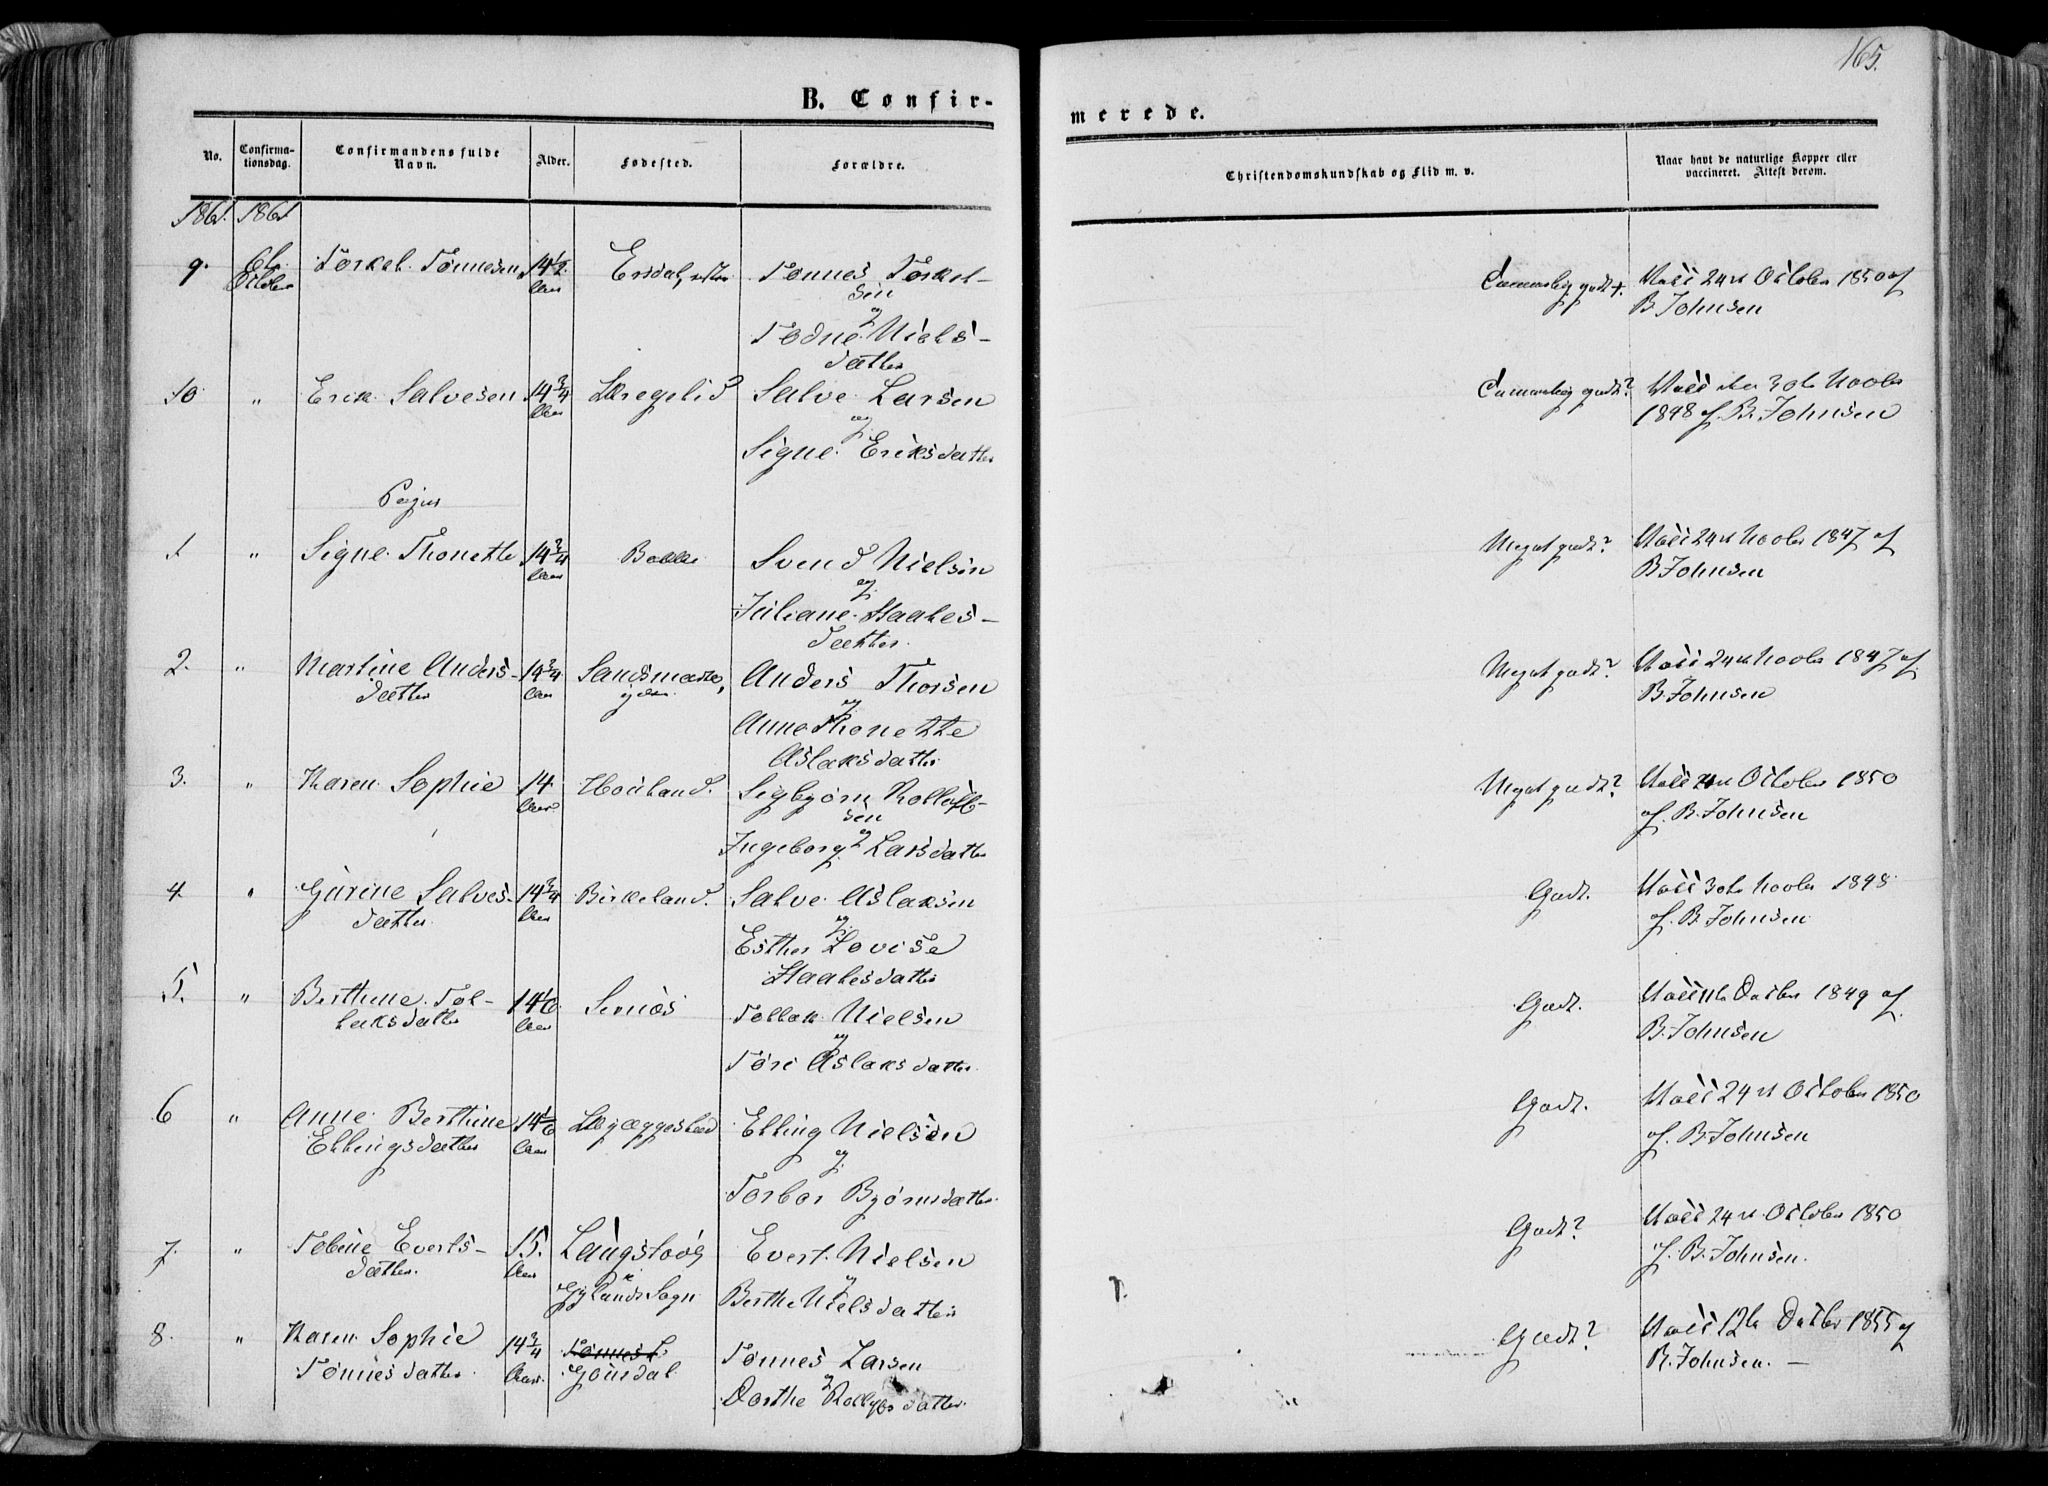 165.
B. Confir-
merede.
No.
Confirma-
tionsdag.
Confirmandens fulde
Navn.
Alder.
Fødested.
Forældre.
Christendomskundskab og Flid m. v.
Naar havt de naturlige Kopper eller
vaccineret. Attest derom.
1861. 1861
9. 6te Torkel Tønnesen 14½ Ersdal, Tønnes Torkel- Temmelig godt+. Vacc 24de October 1850 af
October Aar sen B Johnsen
og
Todne Niels-
datter
10 " Erik Salvesen 14¾ Skregelid Salve Larsen Temmelig godt? Vacc den 30te Novbr
Aar og 1848 af B. Johnsen
Signe Eriksdatter
Piger
1 " Signe Thonette 14¾ Svend Nielsen Meget godt? Vacc 24de Novbr 1847 af
Aar og B Johnsen
Juliane Haakes-
datter.
2. " Martine Anders- 14¾ Anders Thorsen Meget godt? Vacc 24de Novbr 1847 af
datter Aar og B. Johnsen
Anne Thonette
Aslaksdatter
3. " Karen Sophie 14 Houland. Sigbjørn Rollof- Meget godt? Vacc October 1850
Aar sen af B. Johnsen
og
Ingeborg Larsdatter
4 " Gurine Salves- 14¾ Birkeland. Salve Aslaksen Godt. Vacc 30te Novbr 1848
datter Aar og af B Johnsen
Esther Lovise
Haakesdatter
5. " Berthine Tol- 14 1/6 Tollak Nielsen Godt. Vacc 11te Decbr 1849 af
laksdatter Aar og B. Johnsen
Tøri Aslaksdatter
6 " Anne Berthine 14 1/6 Skjæggestad Elling Nielsen Godt. Vacc 24de October 1850
Ellingsdatter Aar og af B. Johnsen
Torbor Bjørnsdatter
7. " Tobine Everts- 15. Evert Nielsen Godt? Vacc 24de October 1850
datter. Aar Gylands Sogn og af B. Johnsen.
Berthe Nielsdatter
8. " Karen Sophie 14¾ Tønnes Larsen Godt? Vacc 12te Decbr 1855 af
Tønnesdatter Aar. og B. Johnsen. —
Dorthe